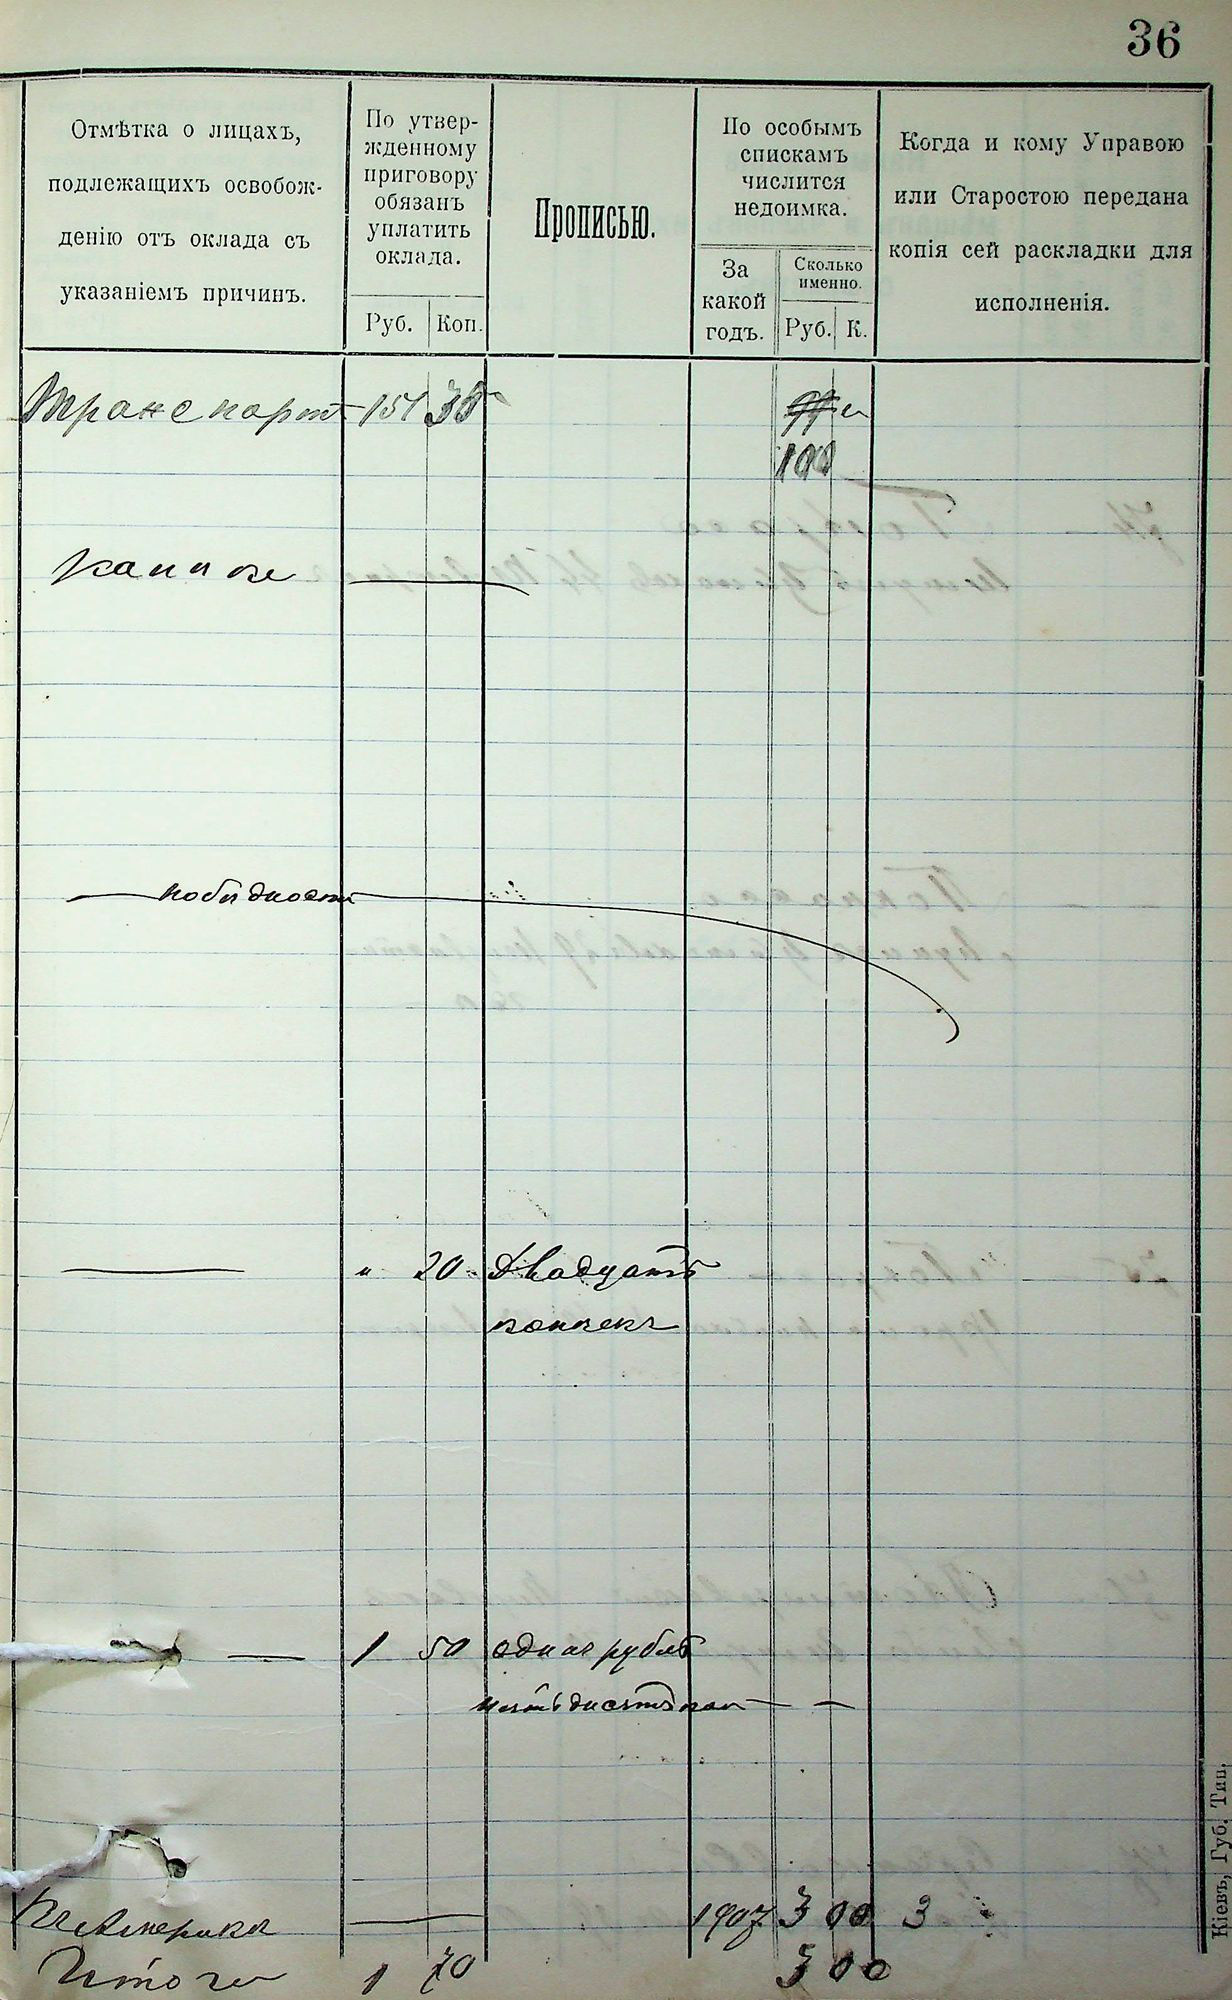 36
Отмѣтка о лицахъ,
подлежащихъ освобож-
денію отъ оклада съ
указаніемъ причинъ.
По утвер-
жденному
приговору
обязанъ
уплатить
оклада.
Руб. Коп.
Прописью.
По особымъ
спискамъ
числится
недоимка.
За
какой
годъ.
Сколько
именно.
Руб. К.
Когда и кому Управою
или Старостою передана
копія сей раскладки для
исполненія.
Транспорт 151
100
по бѣдности
" 20 Двадцать
копѣекъ
1 50 одинъ рубль
пятьдесятъ коп
въ Америкѣ 1907 3 00 3
Итого 1 70 3 00
Кіевъ, Губ. Тип.